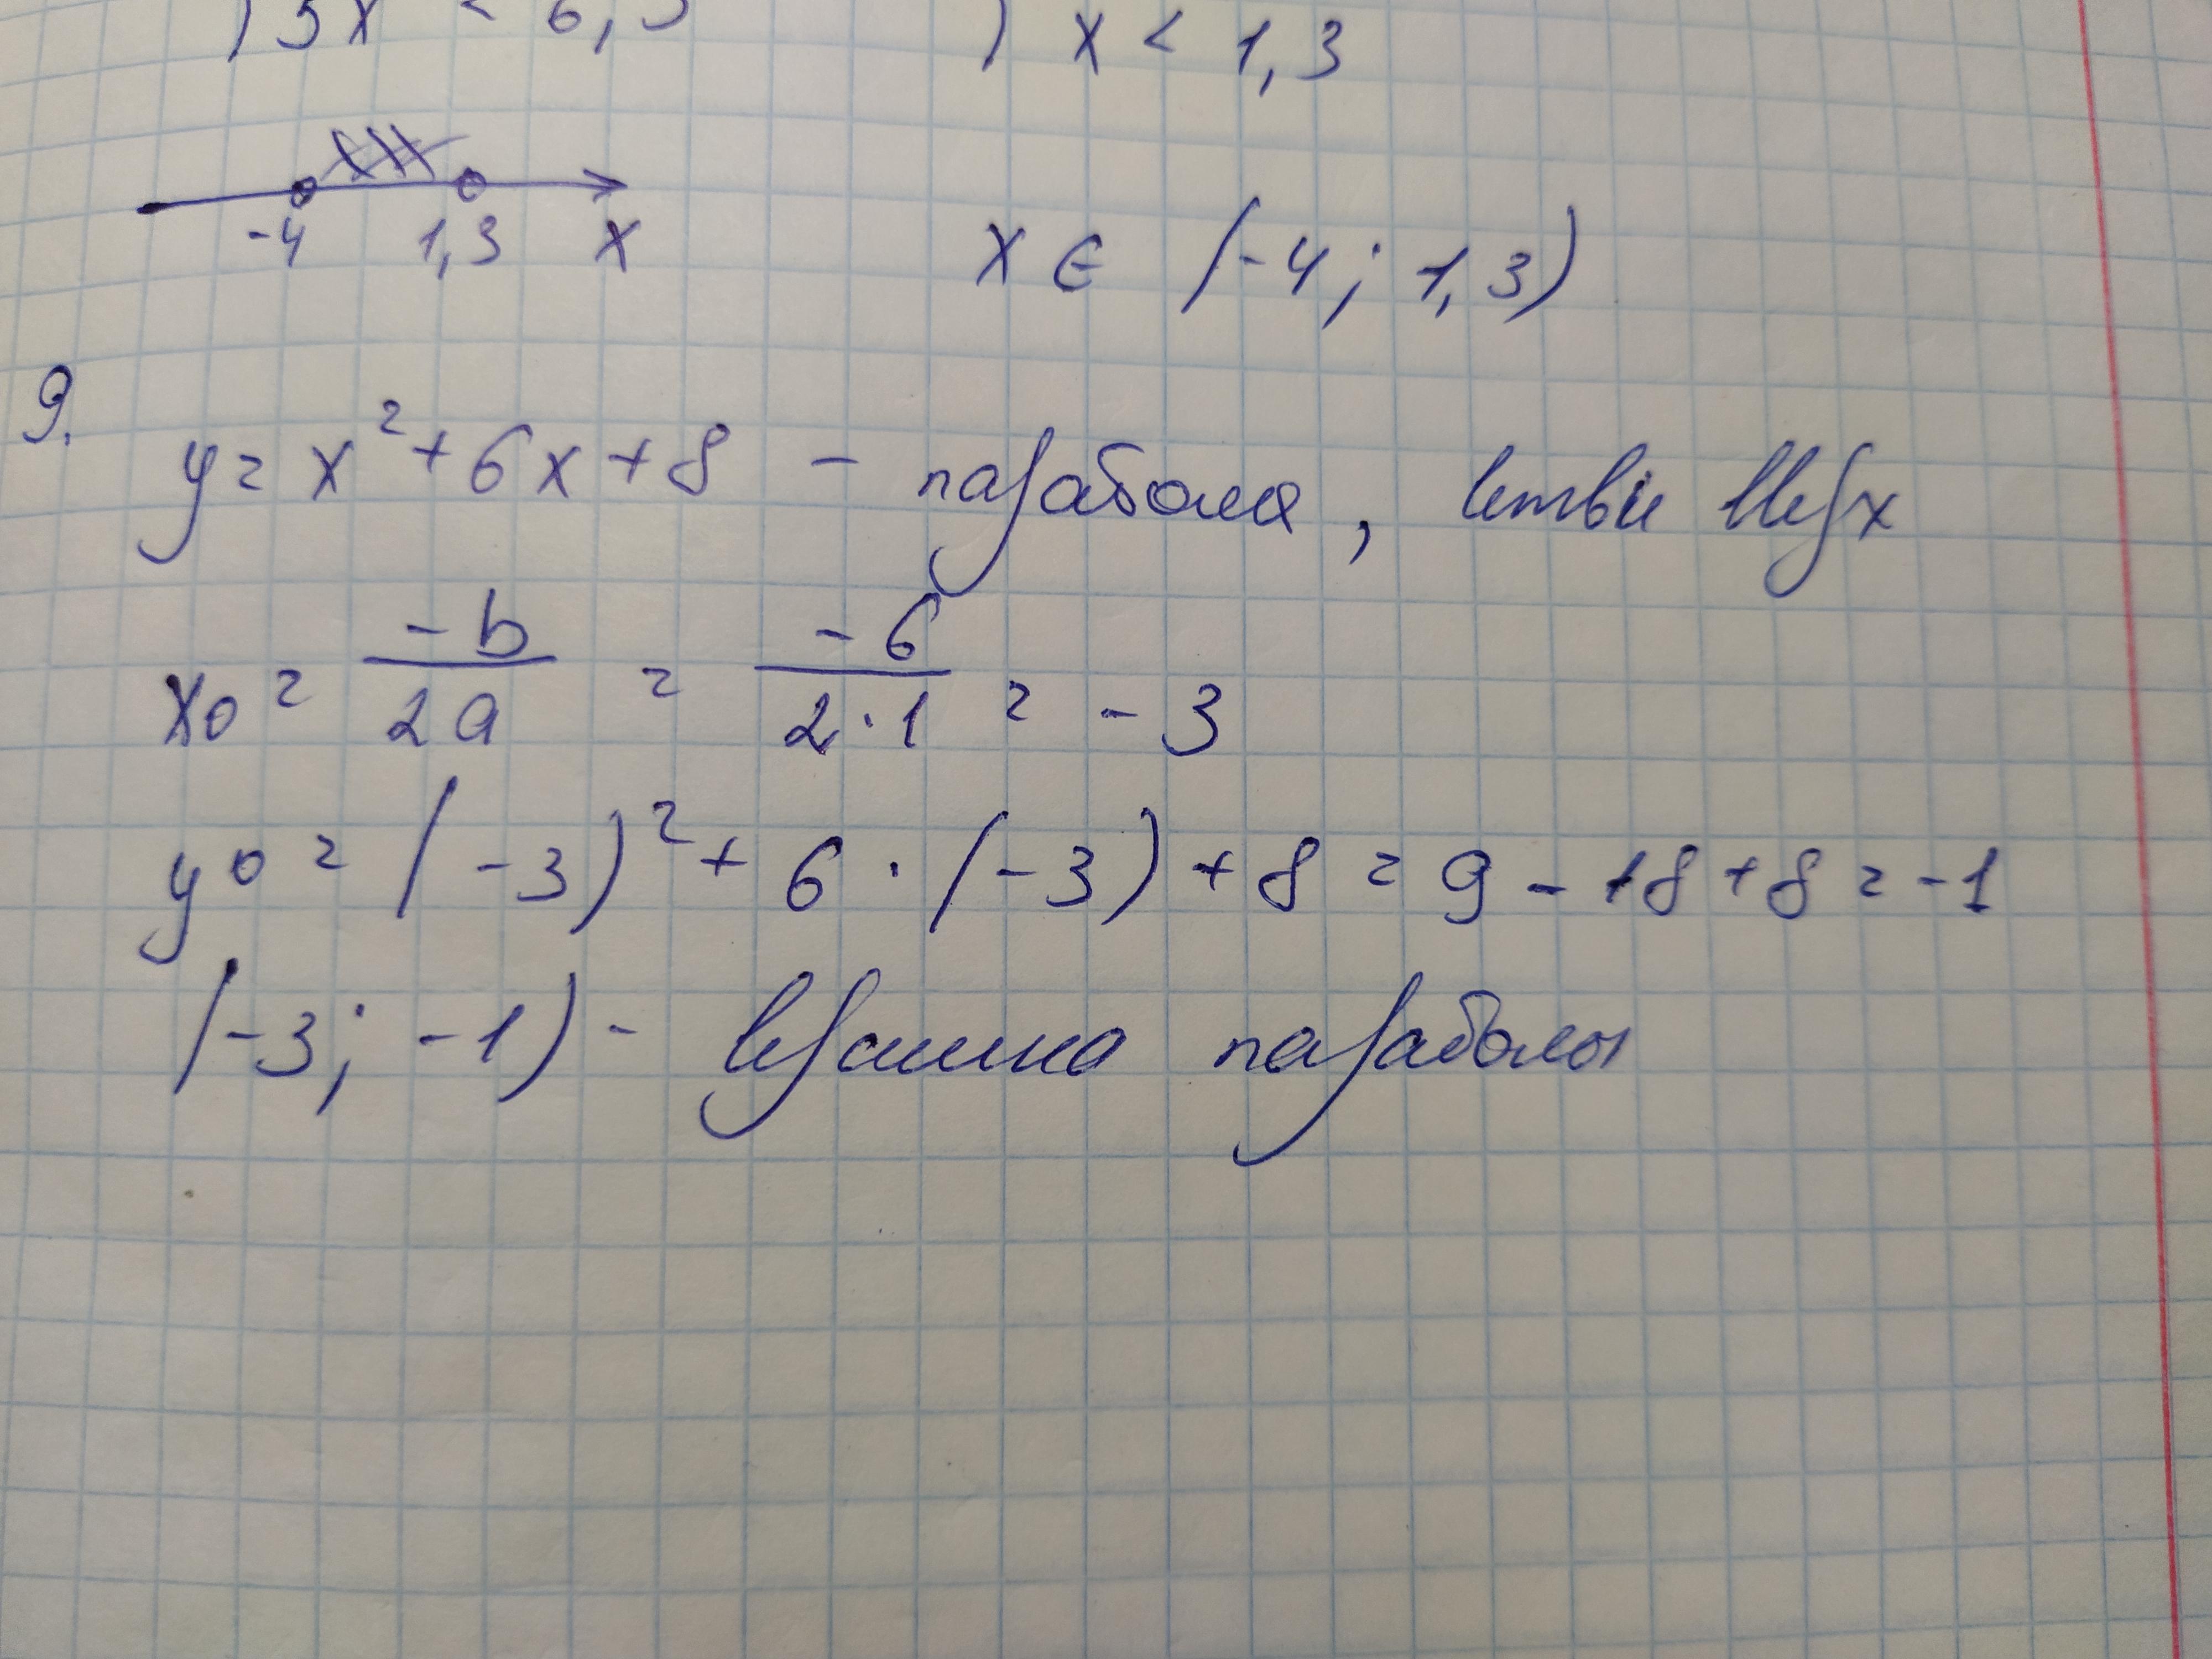 ) 5x < 6,5 ) x < 1,3
-4 1,3 x x ∈ (-4; 1,3)
9.
y = x² + 6x + 8 – парабола, ветви вверх
x0 = -b/2a = -6/2·1 = -3
y0 = (-3)² + 6 · (-3) + 8 = 9 - 18 + 8 = -1
(-3; -1) - вершина параболы